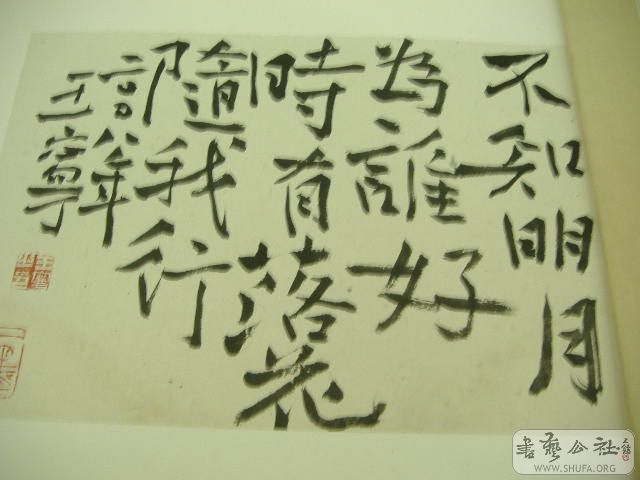 不知明月
為誰好
時有落花
隨我行
王寧
書藝公社
WWW.SHUFA.ORG